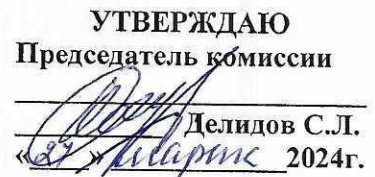 УТВЕРЖДАЮ
Председатель комиссии
Делидов С.Л.
«27» марта 2024г.